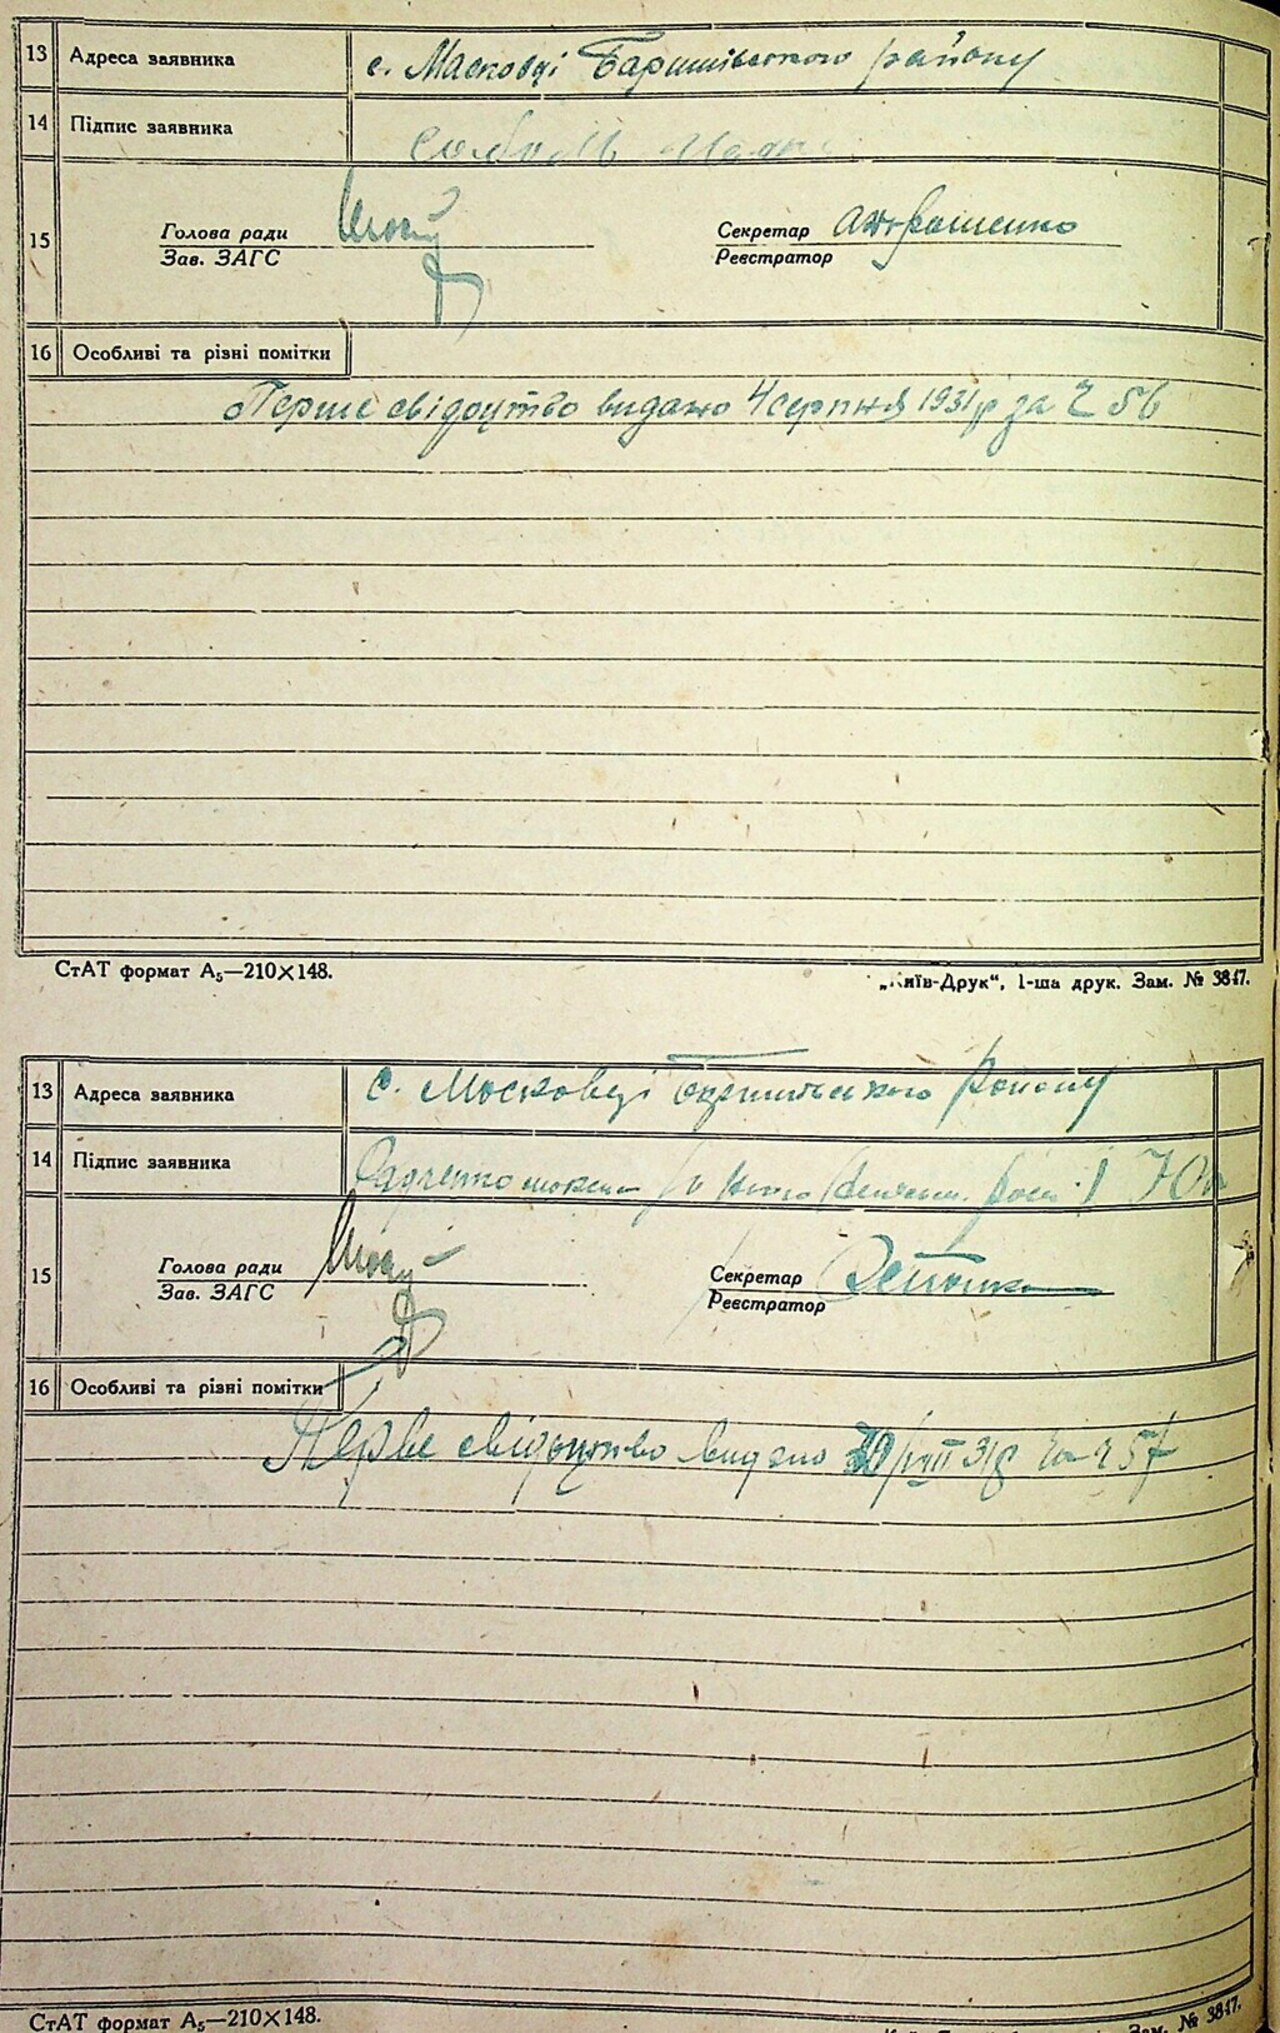 13 Адреса заявника с. Масковці Баришівського району
14 Підпис заявника
15 Голова ради Секретар
Зав. ЗАГС Реєстратор
16 Особливі та різні помітки
Перше свідоцтво видано 4 серпня 1931 р за 2 56
СтАТ формат А₅—210×148. „Київ-Друк“, 1-ша друк. Зам. № 3847.
13 Адреса заявника с. Московці району
14 Підпис заявника
15 Голова ради Секретар
Зав. ЗАГС Реєстратор
16 Особливі та різні помітки
Перве свідоцтво видано 57
СтАТ формат А₅—210×148. Зам. № 3847.